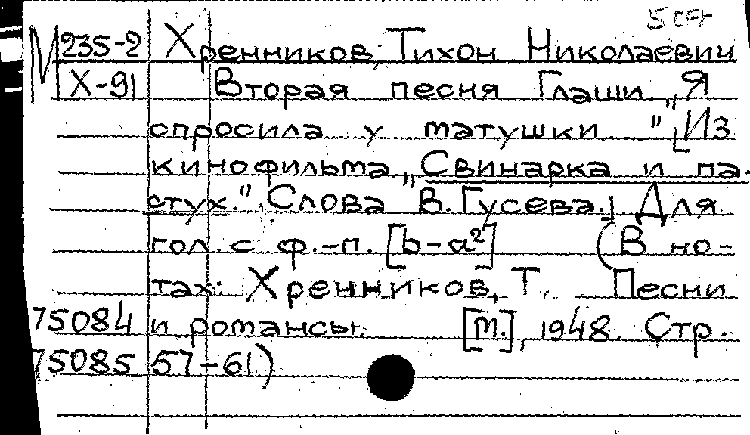 М 235-2 Хренников, Тихон Николаевич
Х-91 Вторая песня Глаши „Я
спросила у матушки". [Из
кинофильма „Свинарка и па-
стух." Слова В. Гусева.] Для
гол с ф.-п. [b-a²] (В но-
тах: Хренников, Т. Песни
75084 и романсы. [М.], 1948. Стр.
75085 57-61)